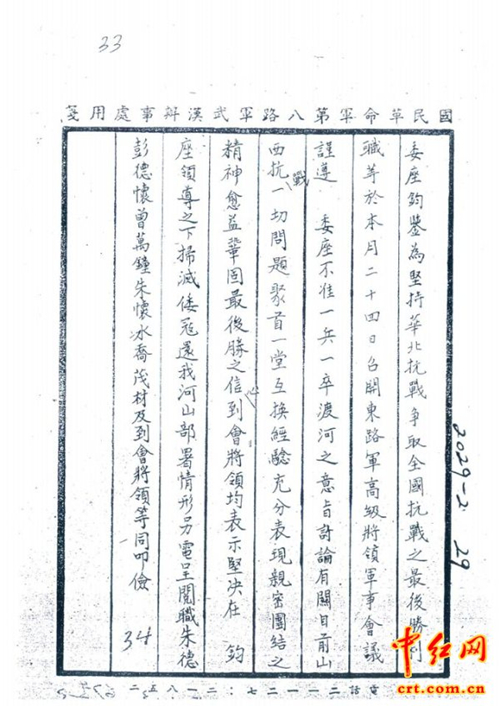 33
國民革命軍第八路軍武漢辦事處用箋
委座鈞鑒為堅持華北抗戰爭取全國抗戰之最後勝利
職等於本月二十四日召開東路軍高級將領軍事會議
謹遵　委座不准一兵一卒渡河之意旨討論有關目前山
西抗戰一切問題聚首一堂互換經驗充分表現親密團結之
精神愈益鞏固最後勝之信心到會將領均表示堅決在　鈞
座領導之下掃滅倭寇還我河山部署情形另電呈閱職朱德
彭德懷曾萬鍾朱懷冰喬茂材及到會將領等同叩儉
34
2029-2 29
電話二一一二七：二一八五二
中红网
crt.com.cn